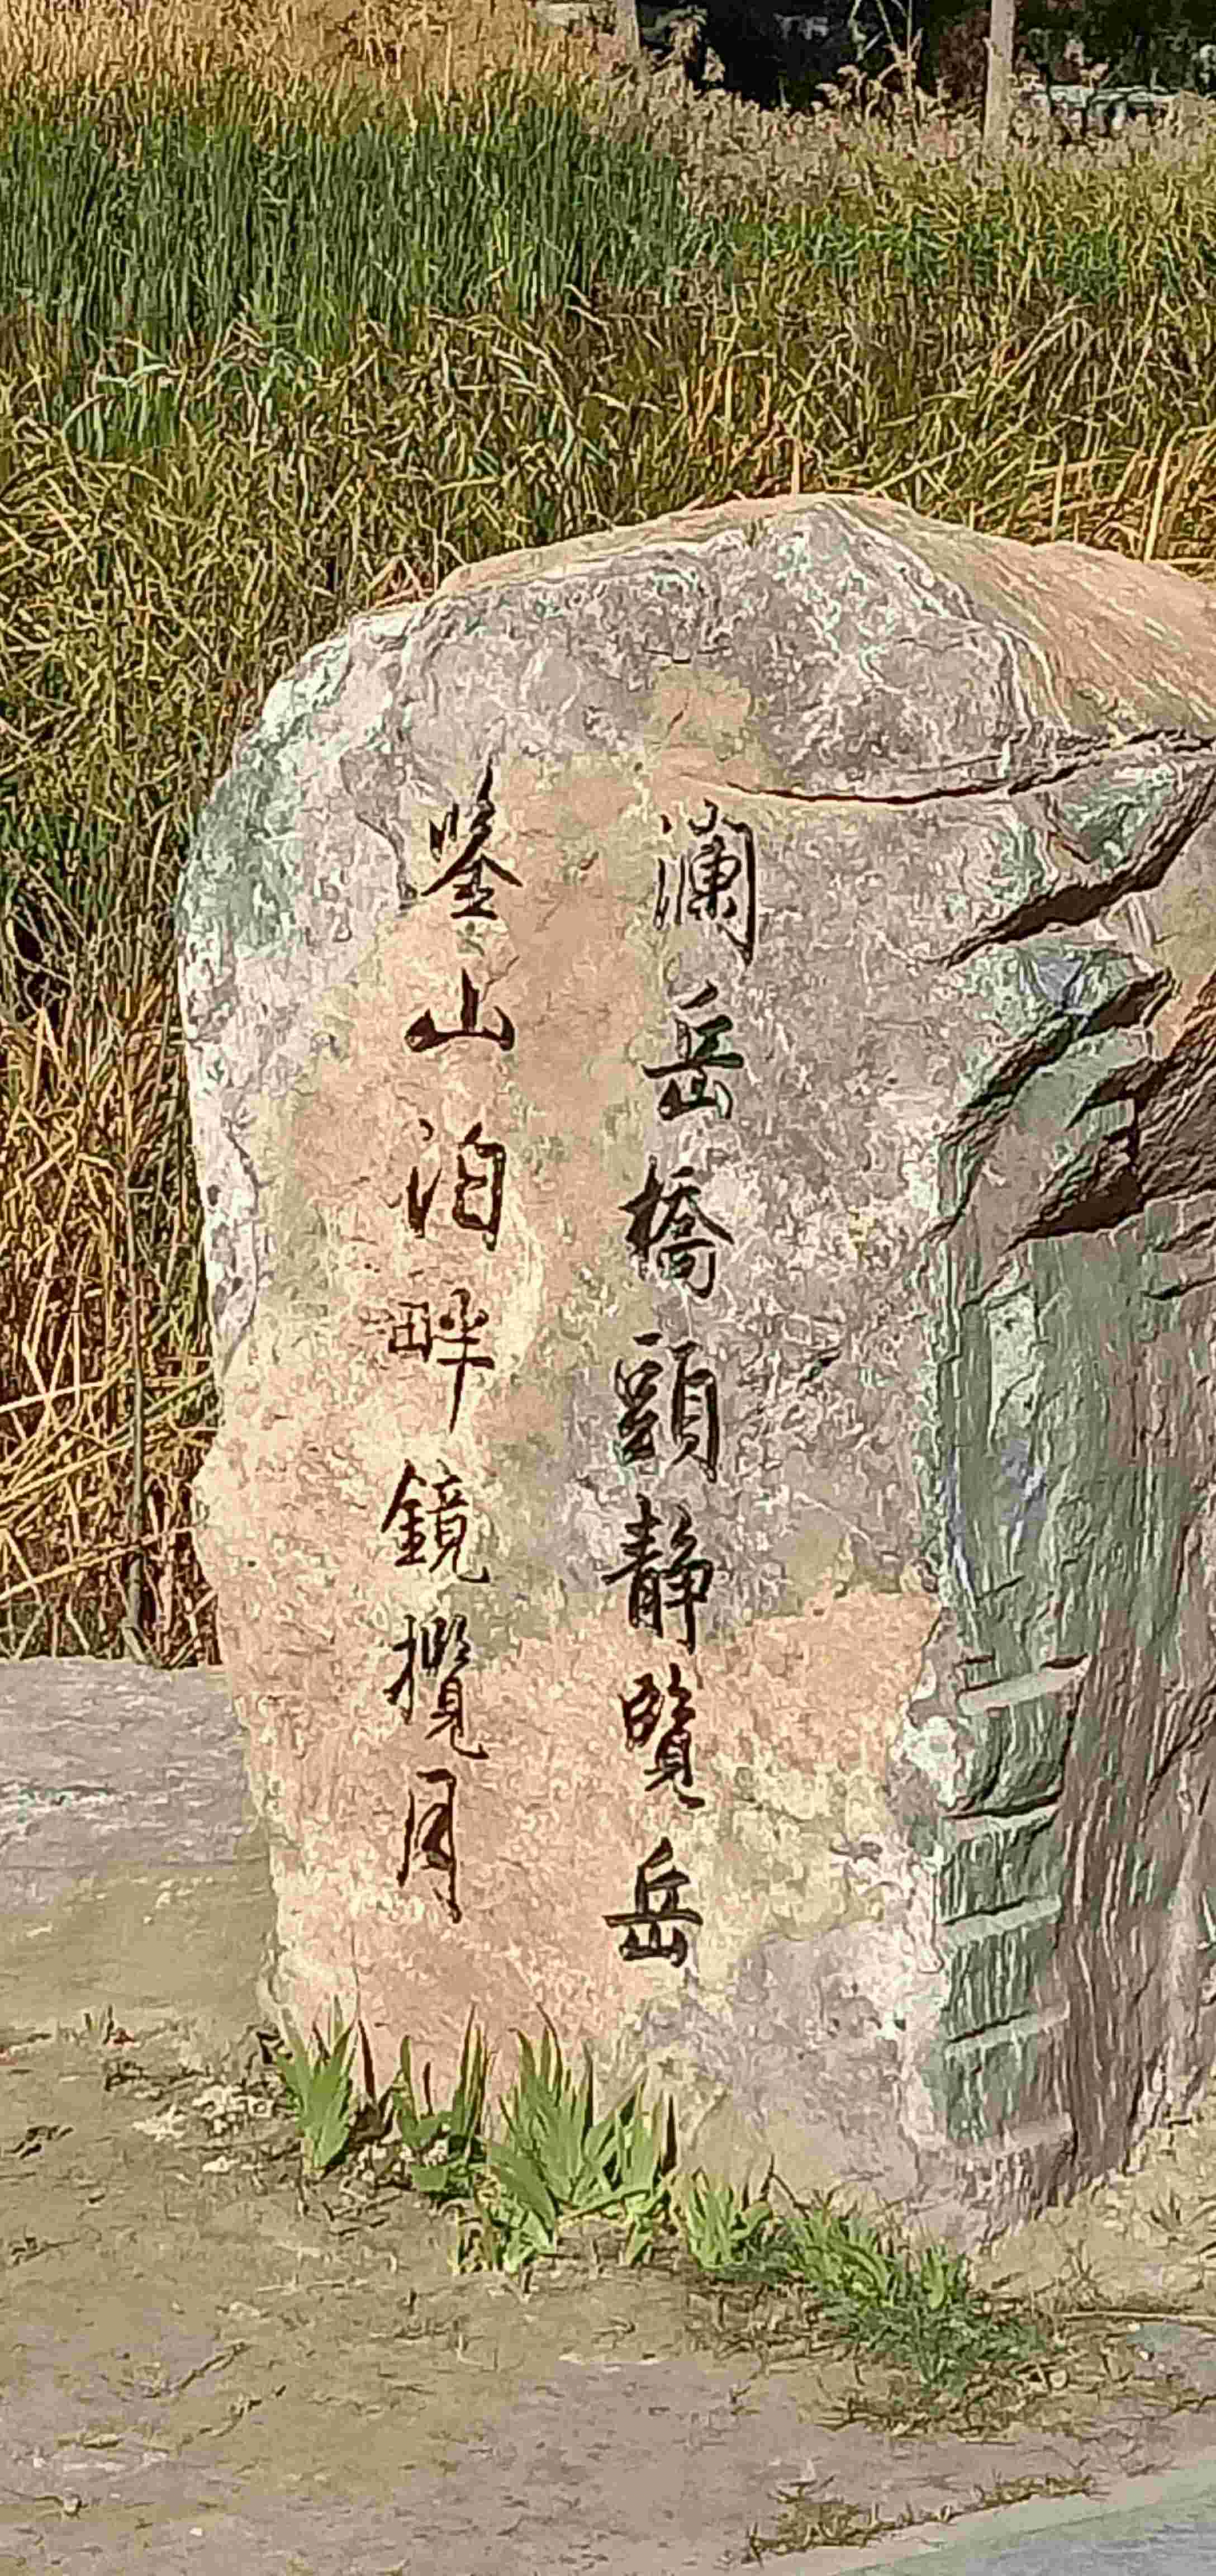 瀾岳橋頭静覽岳
鉴山泊畔鏡攬月